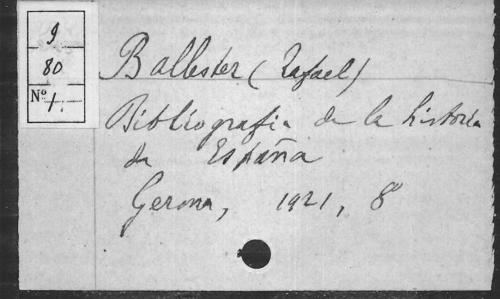 9
80
Nº 1.-
Ballester (Rafael)
Bibliografia de la historia
de España
Gerona, 1921, 8º